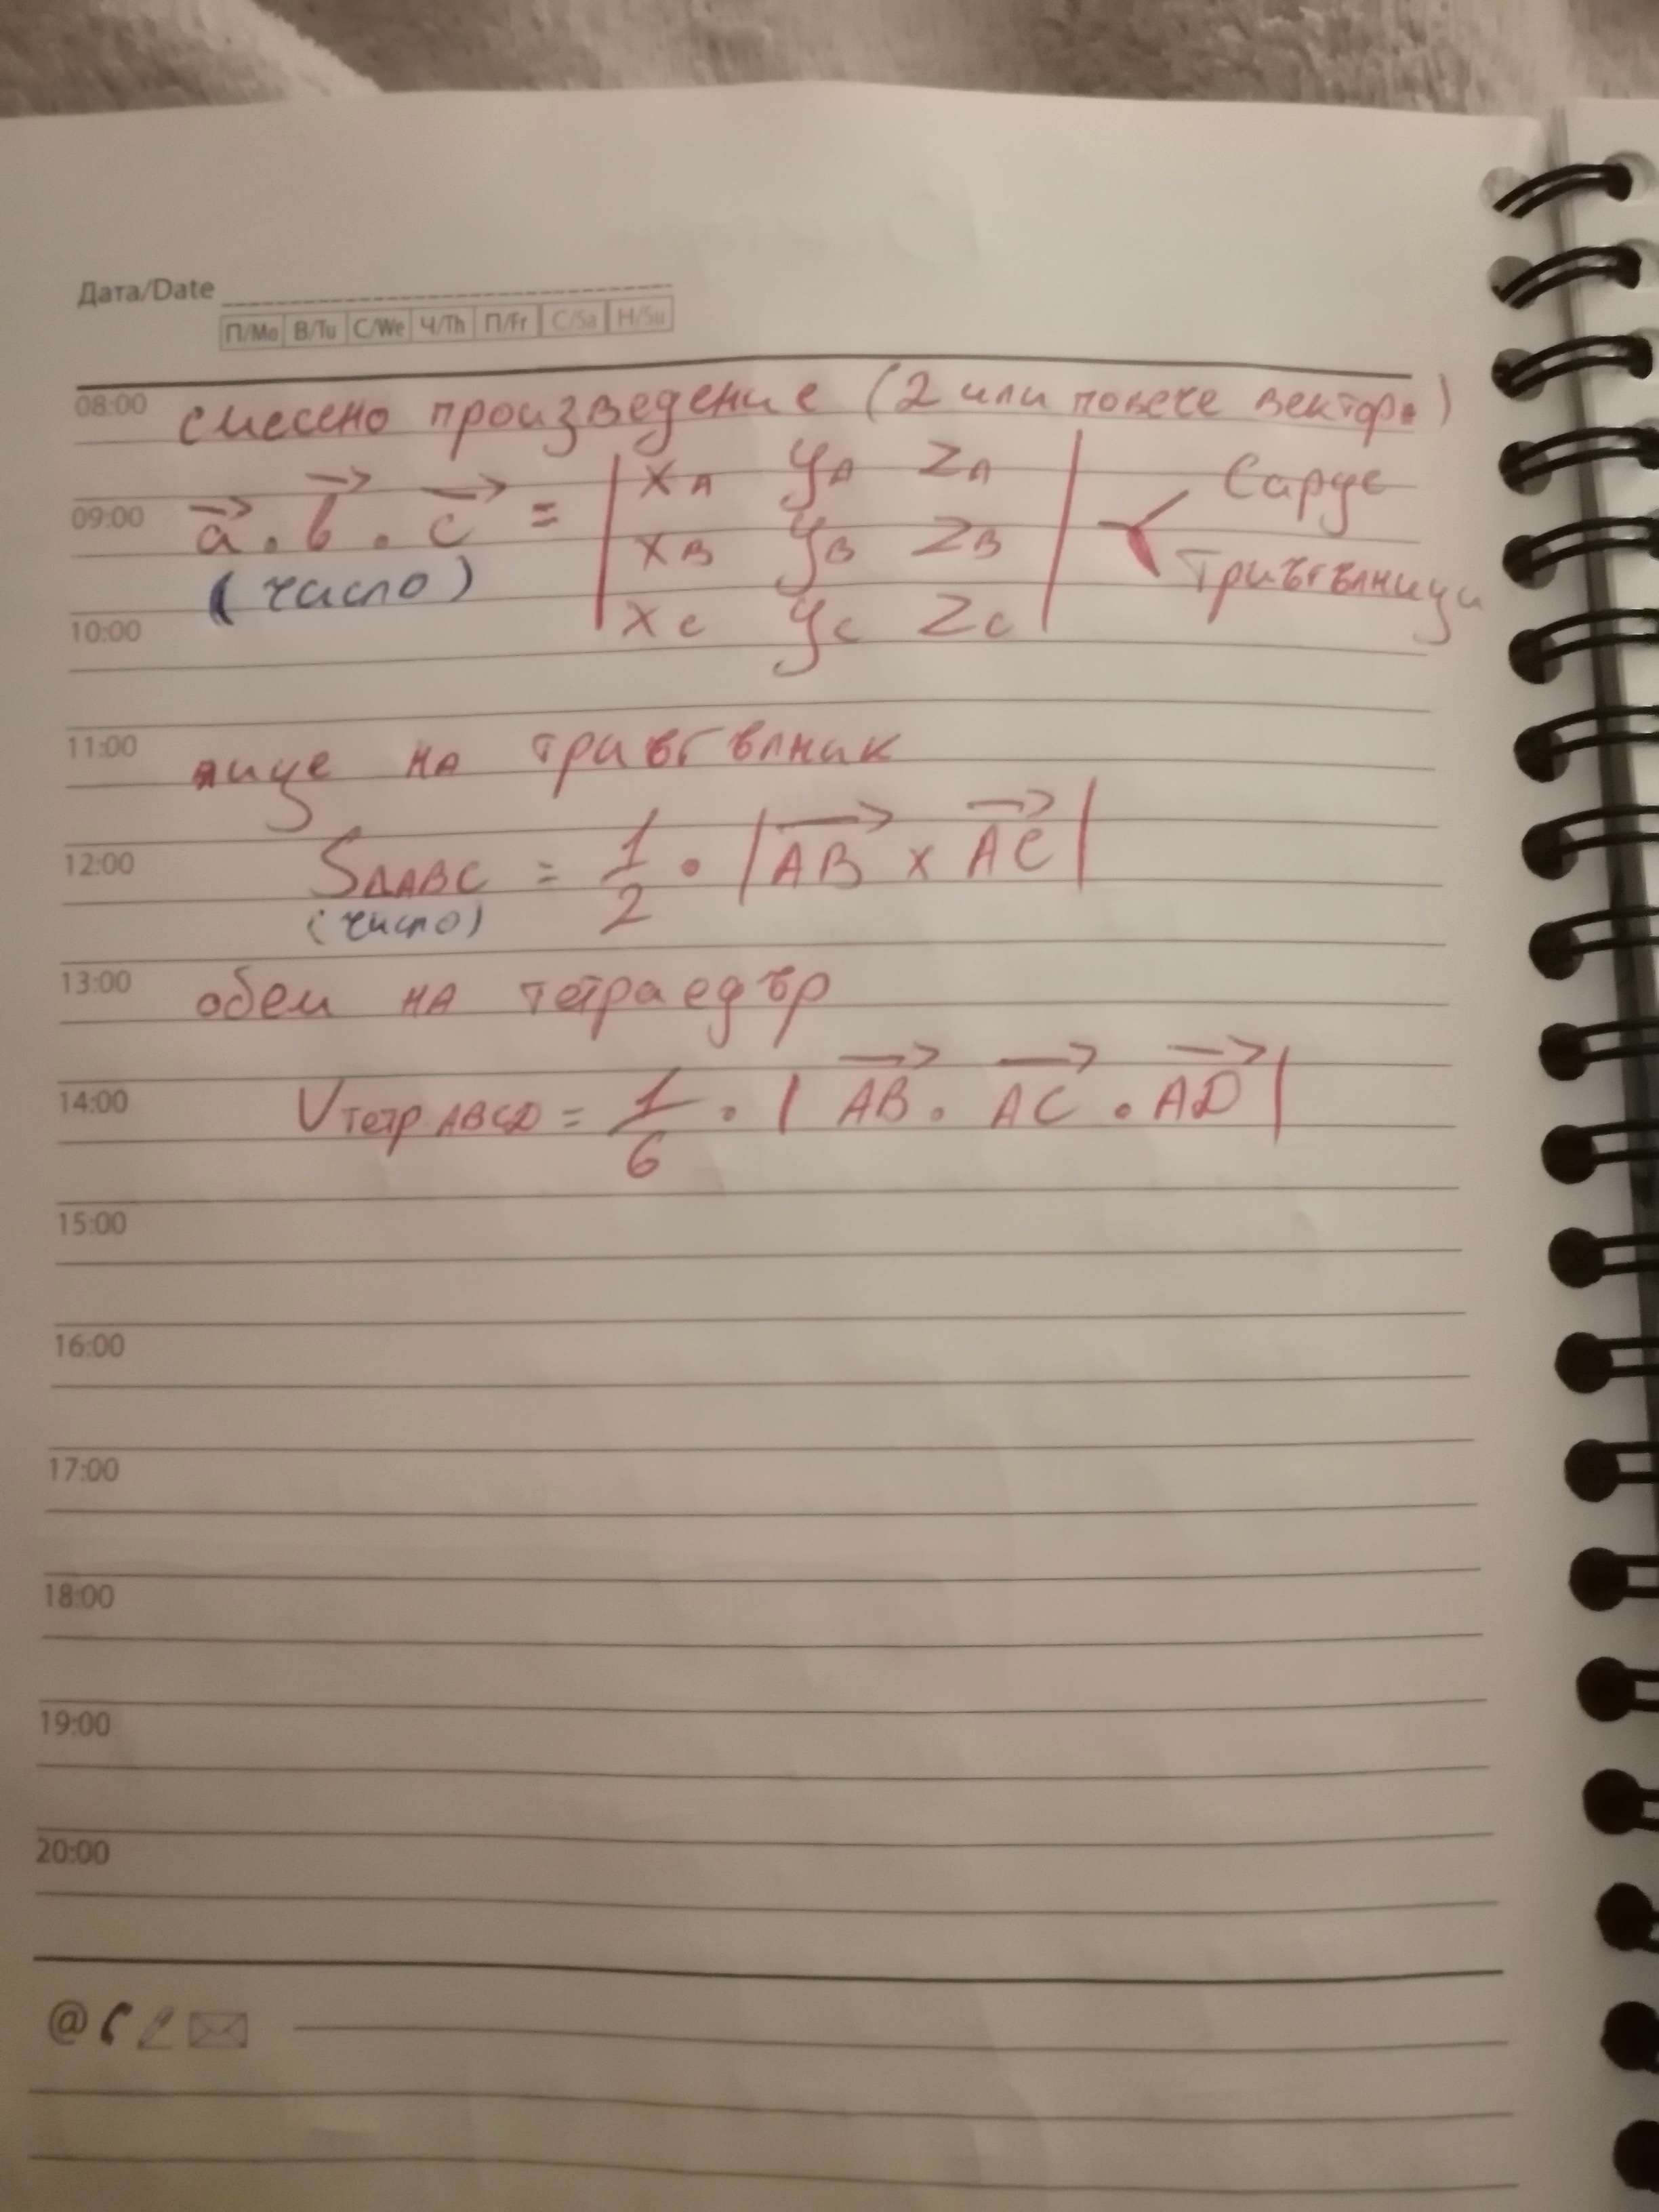 Дата/Date
П/Mo В/Tu С/We Ч/Th П/Fr С/Sa Н/Su
08:00 смесено произведение (2 или повече вектора)
09:00 a⃗ . b⃗ . c⃗ = | xA yA zA | Сарус
(число) | xB yB zB | триъгълници
10:00 | xC yC zC |
11:00 лице на триъгълник
12:00 S△ABC = 1/2 . |AB⃗ x AC⃗|
(число)
13:00 обем на тетраедър
14:00 Vтетр.ABCD = 1/6 . | AB⃗ . AC⃗ . AD⃗ |
15:00
16:00
17:00
18:00
19:00
20:00
@